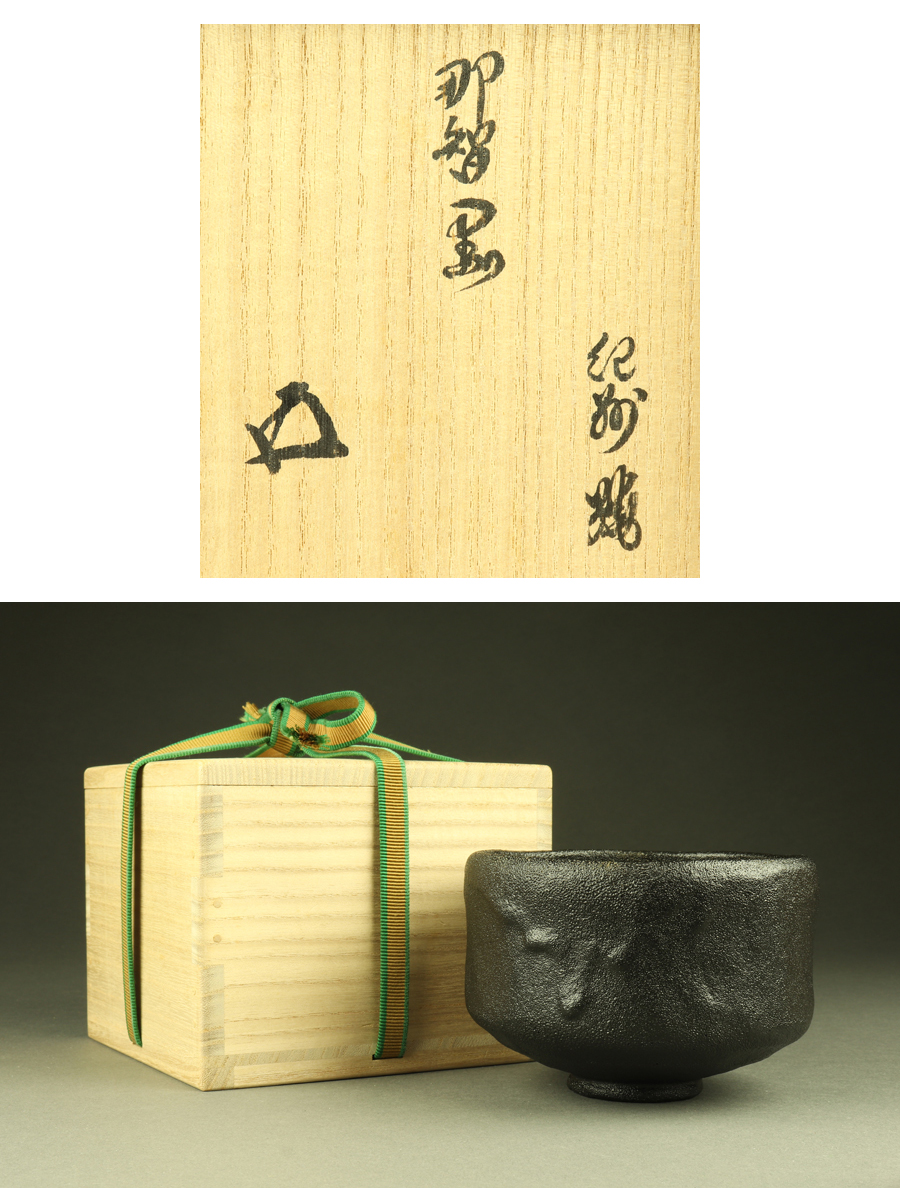 紀州焼
那智黒